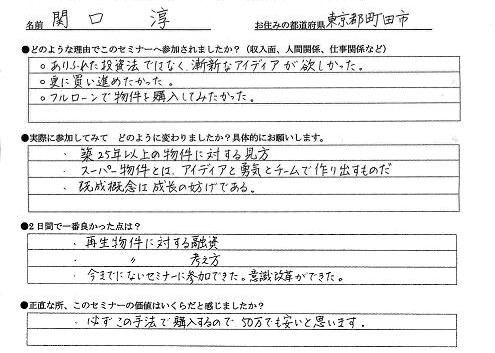 名前 関口 淳 お住みの都道府県 東京都町田市
●どのような理由でこのセミナーへ参加されましたか？（収入面、人間関係、仕事関係など）
○ ありふれた投資法ではなく、斬新なアイディアが欲しかった。
○ 更に買い進めたかった。
○ フルローンで物件を購入してみたかった。
●実際に参加してみて どのように変わりましたか？具体的にお願いします。
・ 築25年以上の物件に対する見方
・ スーパー物件とは、アイディアと勇気とチームで作り出すものだ
・ 既成概念は成長の妨げである。
●2日間で一番良かった点は？
・ 再生物件に対する融資
・ 〃 考え方
・ 今までにないセミナーに参加できた。意識改革ができた。
●正直な所、このセミナーの価値はいくらだと感じましたか？
・ 必ずこの手法で購入するので 50万でも安いと思います。